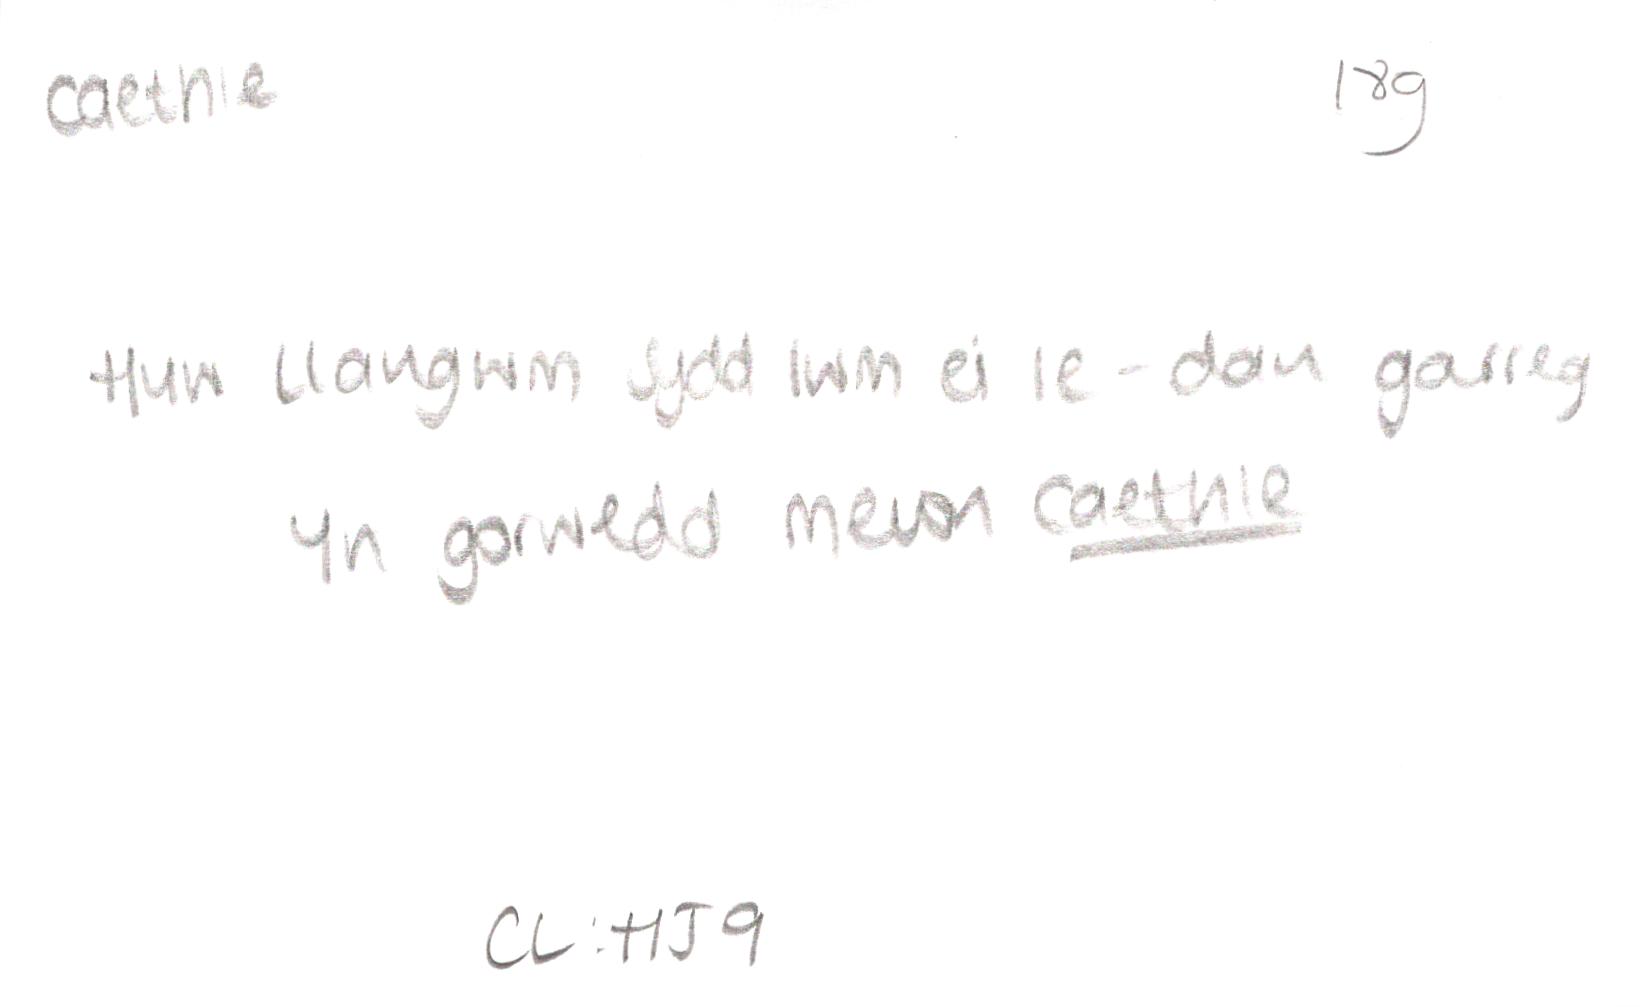 caethle 18g
Huw Llangwm sydd lwm ei le - dan garreg
yn gorwedd mewn caethle
CL:HJ 9